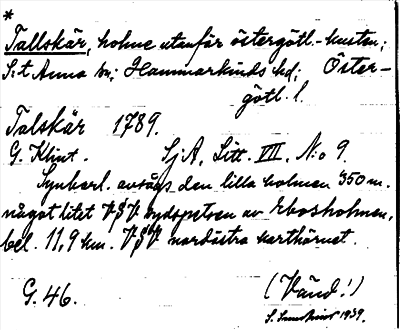 *
Tallskär, holme utanför östergötl.-kusten;
S:t Anna sn; Hammarkinds hd; Öster-
götl. l.
Talskär 1789.
G. Klint. SjA, Litt. VII. N:o 9.
Synberl. avsågs den lilla holmen 350 m.
något litet VSV sydspetsen av Ebosholmen,
bel. 11,9 km. VSV nordöstra karthörnet.
G. 46. (Vänd!)
S. 1939.